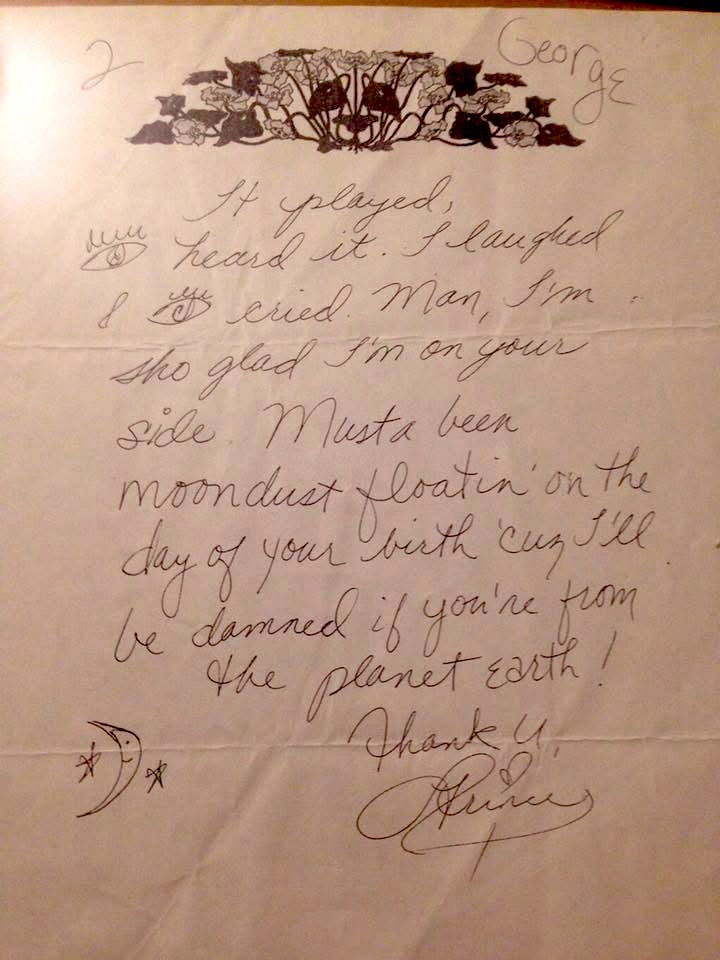 2 George
It played,
heard it. I laughed
& cried. Man, I'm
sho glad I'm on your
side. Musta been
moondust floatin' on the
day of your birth 'cuz I'll
be damned if you're from
the planet earth!
Thank U,
Prince